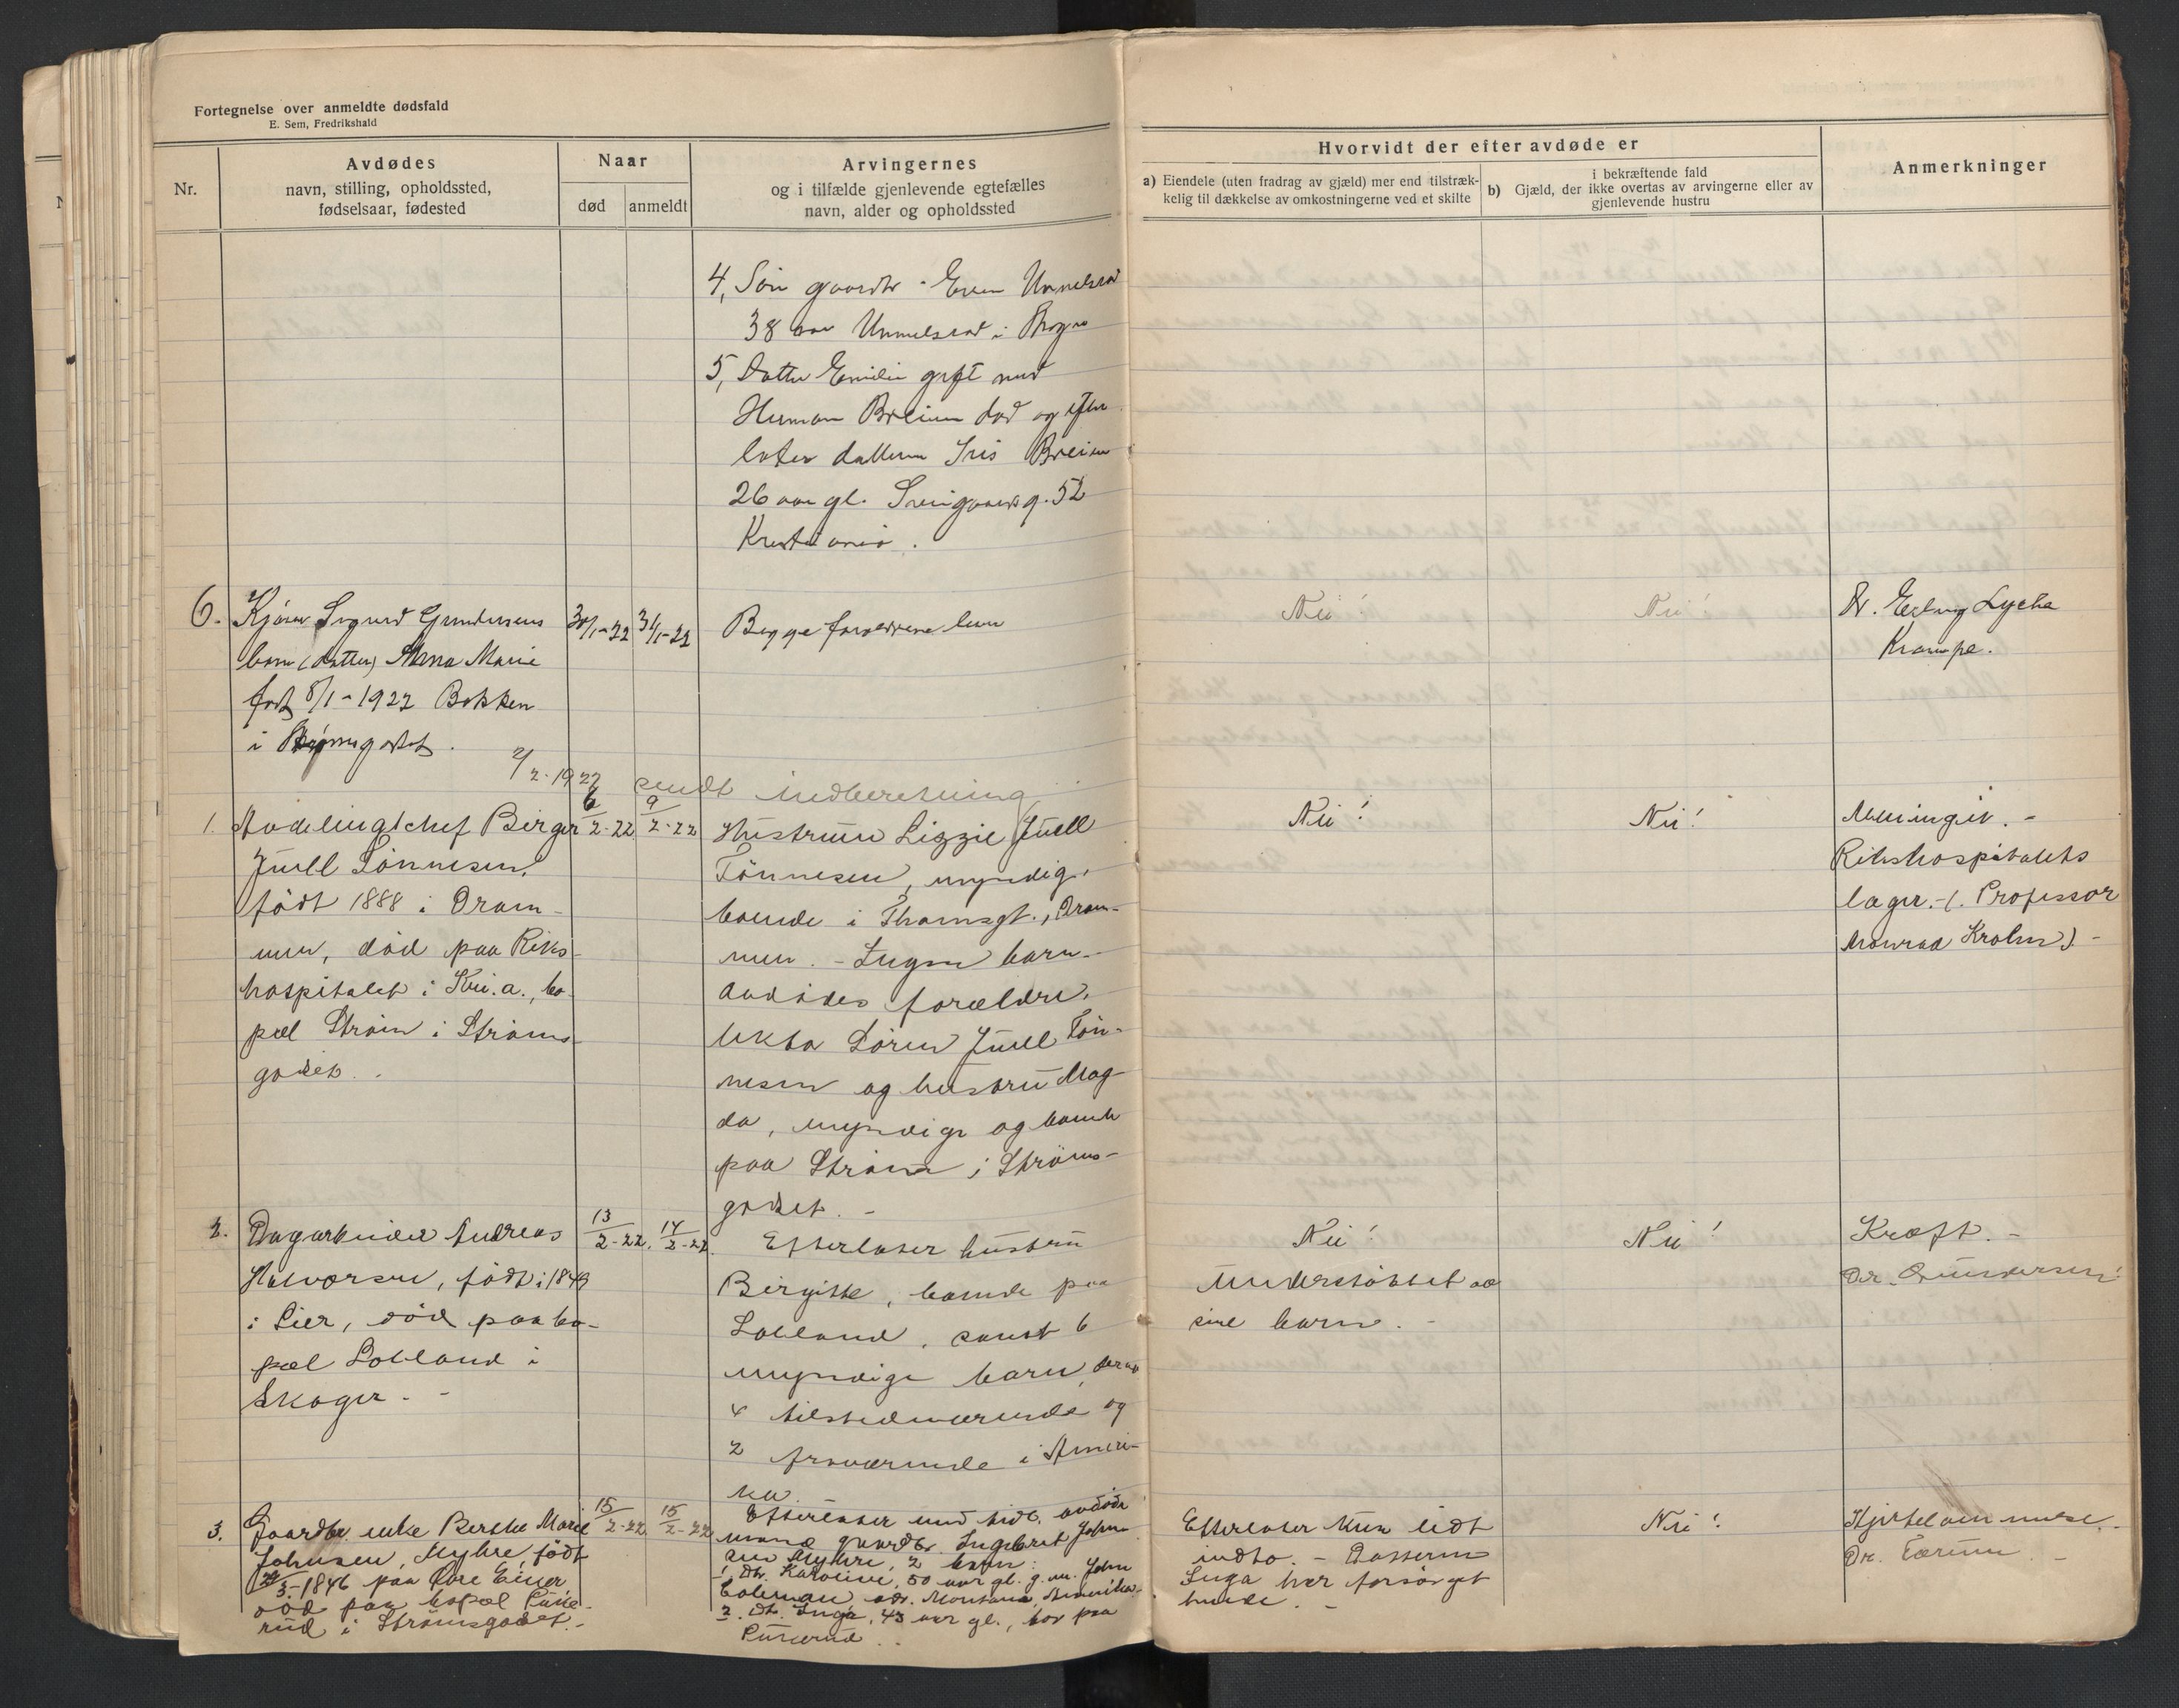 Fortegnelse over anmeldte dødsfald
E. Sem, Fredrikshald
Nr.
Avdødes
navn, stilling, opholdssted,
fødselsaar, fødested
Naar
død
anmeldt
Arvingernes
og i tilfælde gjenlevende egtefælles
navn, alder og opholdssted
Hvorvidt der efter avdøde er
a) Eiendele (uten fradrag av gjæld) mer end tilstræk-
kelig til dækkelse av omkostningerne ved et skifte
b) i bekræftende fald
Gjæld, der ikke overtas av arvingerne eller av
gjenlevende hustru
Anmerkninger
4, Søn gaardbr. Even Unnelsrud
38 aar Unnelsrud i
5, Datter Emilie gift med
Herman Breien død og efter
later datteren Iris Breien
26 aar gl. g. 52
Kristiania.
6.
Kjører Sigurd Gundersens
barn (datter) Anna Marie
født 8/1-1922 Bokken
i
30/1-22
31/1-22
Begge forældrene lever
Nei!
Nei!
Dr. Erling Lyche
Krampe.
2/2-1922 sendt indberetning
1.
Avdelingschef Birger
Juell Tönnesen,
født 1888 i Dram-
men, död paa Riks-
hospitalet i Kri.a., bo-
pæl Ström i Ströms-
godset.
6/2-22
9/2-22
Hustruen Lizzie Juell
Tönnesen, myndig,
boende i Thamsgt., Dram-
men. - Ingen barn.
Avdödes forældre,
Sören Juell Tön-
nesen og hustru Mag-
da, myndige og boende
paa Ström i Ströms-
godset. -
Nei!
Nei!
Meningit. -
Rikshospitalets
læger. - (Professor
Monrad Krohn). -
2.
Dagarbeider Andreas
Halvorsen, født i 1849
i Lier, död paa bo-
pæl Lolland i
Skoger. -
13/2-22.
14/2-22.
Efterlater hustru
Birgitte, boende paa
Lolland, samt 6
myndige barn, derav
4 tilstedeværende og
2 fraværende i Ameri-
ka.
Nei!
Understöttet av
sine barn. -
Nei!
Kræft. -
Dr. Gundersen.
3.
Gaardbr. enke Berthe Marie
Johnsen, Myhre, født
3-1846 paa Övre Eiker,
död paa bopæl
i Strömsgodset. -
15/2-22
15/2-22
Efterlater med tidl. avdöde
mand gaardbr. Ingebret John-
sen Myhre, 2 barn:
1. Dtr. Karoline, 50 aar gl. g. m. John
Coleman adr. Montana, Amerika.
2. Dt. Inga, 43 aar gl., bor paa
Efterlater kun lidt
indbo. - Datteren
Inga har forsörget
hende. -
Nei!
Hjertelammelse. -
Dr.